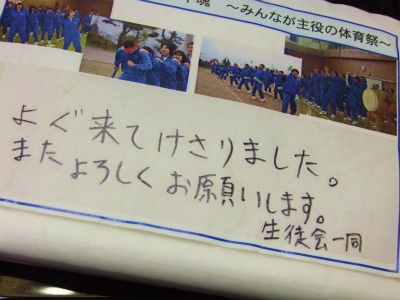 魂 ～みんなが主役の体育祭～
よぐ来てけさりました。
またよろしくお願いします。
生徒会一同